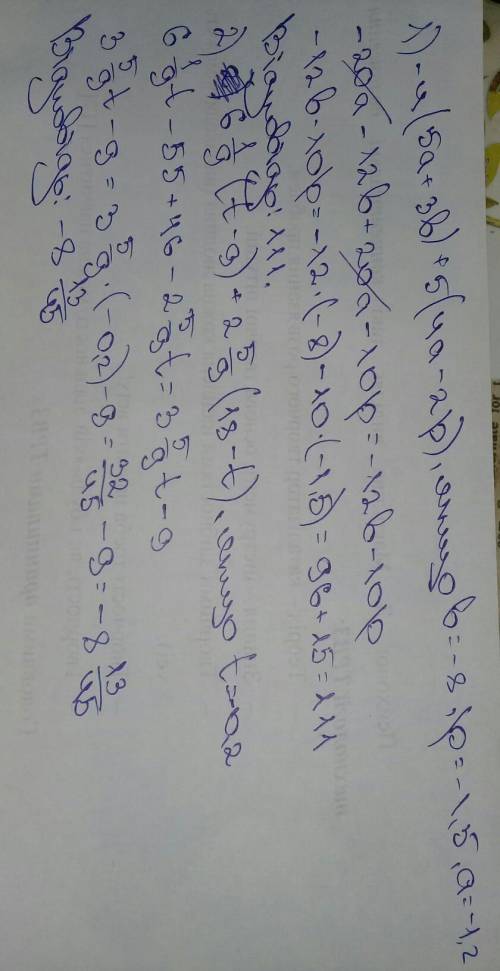 1) -4(5a+3b)+5(4a-2p), якщо b=-8, p=-1,5, a=-1,2
-20a-12b+20a-10p=-12b-10p
-12b-10p=-12·(-8)-10·(-1,5)=96+15=111
Відповідь: 111.
2) 6 1/9 (t-9)+2 5/9 (18-t), якщо t=-0,2
6 1/9 t-55+46-2 5/9 t=3 5/9 t-9
3 5/9 t-9=3 5/9·(-0,2)-9=32/45-9=-8 13/45
Відповідь: -8 13/45